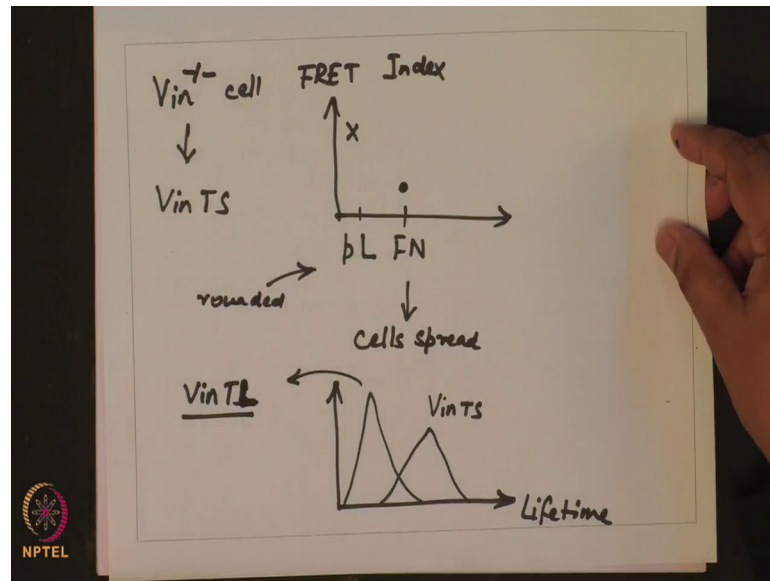 Vin-/- cell
FRET Index
X
VinTS
pL FN
rounded
cells spread
VinTL
VinTS
Lifetime
NPTEL